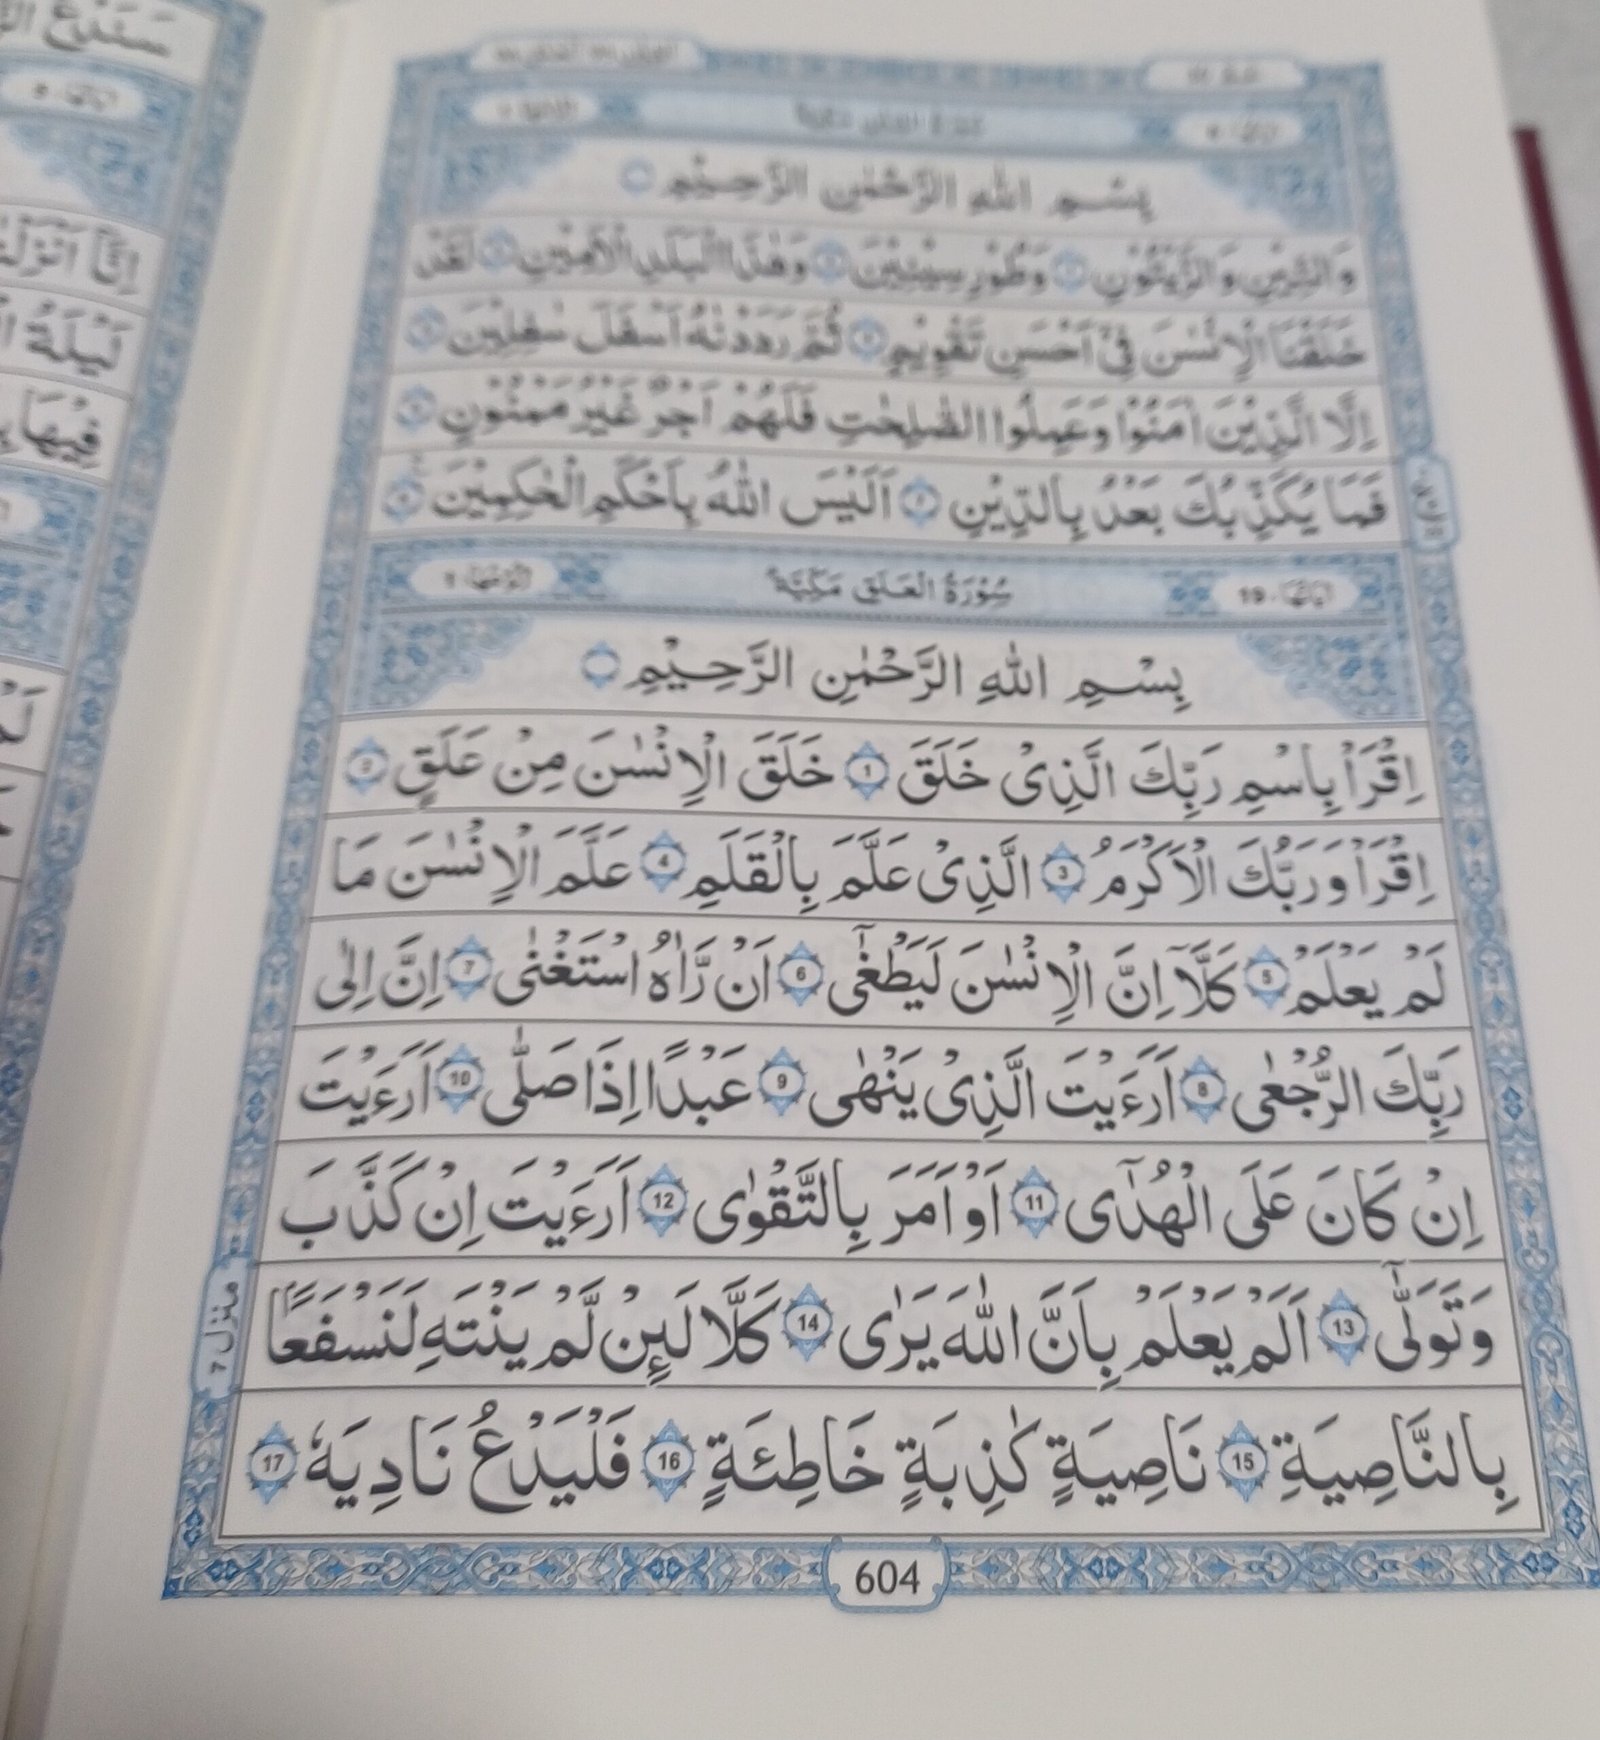 بِسْمِ اللهِ الرَّحْمٰنِ الرَّحِيْمِ
وَالتِّيْنِ وَالزَّيْتُوْنِ وَطُوْرِ سِيْنِيْنَ وَهٰذَا الْبَلَدِ الْاَمِيْنِ لَقَدْ
خَلَقْنَا الْاِنْسٰنَ فِيْٓ اَحْسَنِ تَقْوِيْمٍ ثُمَّ رَدَدْنٰهُ اَسْفَلَ سٰفِلِيْنَ
اِلَّا الَّذِيْنَ اٰمَنُوْا وَعَمِلُوا الصّٰلِحٰتِ فَلَهُمْ اَجْرٌ غَيْرُ مَمْنُوْنٍ
فَمَا يُكَذِّبُكَ بَعْدُ بِالدِّيْنِ اَلَيْسَ اللهُ بِاَحْكَمِ الْحٰكِمِيْنَ
اٰيَاتُهَا ١٩ سُوْرَةُ الْعَلَقِ مَكِّيَّةٌ رُكُوْعُهَا ١
بِسْمِ اللهِ الرَّحْمٰنِ الرَّحِيْمِ
اِقْرَاْ بِاسْمِ رَبِّكَ الَّذِيْ خَلَقَ 1 خَلَقَ الْاِنْسٰنَ مِنْ عَلَقٍ 2
اِقْرَاْ وَرَبُّكَ الْاَكْرَمُ 3 الَّذِيْ عَلَّمَ بِالْقَلَمِ 4 عَلَّمَ الْاِنْسٰنَ مَا
لَمْ يَعْلَمْ 5 كَلَّآ اِنَّ الْاِنْسٰنَ لَيَطْغٰٓى 6 اَنْ رَّاٰهُ اسْتَغْنٰى 7 اِنَّ اِلٰى
رَبِّكَ الرُّجْعٰى 8 اَرَءَيْتَ الَّذِيْ يَنْهٰى 9 عَبْدًا اِذَا صَلّٰى 10 اَرَءَيْتَ
اِنْ كَانَ عَلَى الْهُدٰٓى 11 اَوْ اَمَرَ بِالتَّقْوٰى 12 اَرَءَيْتَ اِنْ كَذَّبَ
وَتَوَلّٰى 13 اَلَمْ يَعْلَمْ بِاَنَّ اللهَ يَرٰى 14 كَلَّا لَىِٕنْ لَّمْ يَنْتَهِ لَنَسْفَعًا
بِالنَّاصِيَةِ 15 نَاصِيَةٍ كٰذِبَةٍ خَاطِئَةٍ 16 فَلْيَدْعُ نَادِيَهٗ 17
منزل 7
604